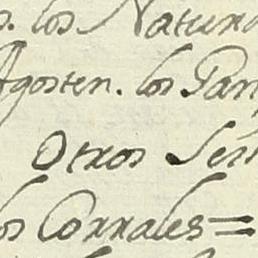 s. los Natura
Agosten. los Pan
Otros Señ
los Corrales=